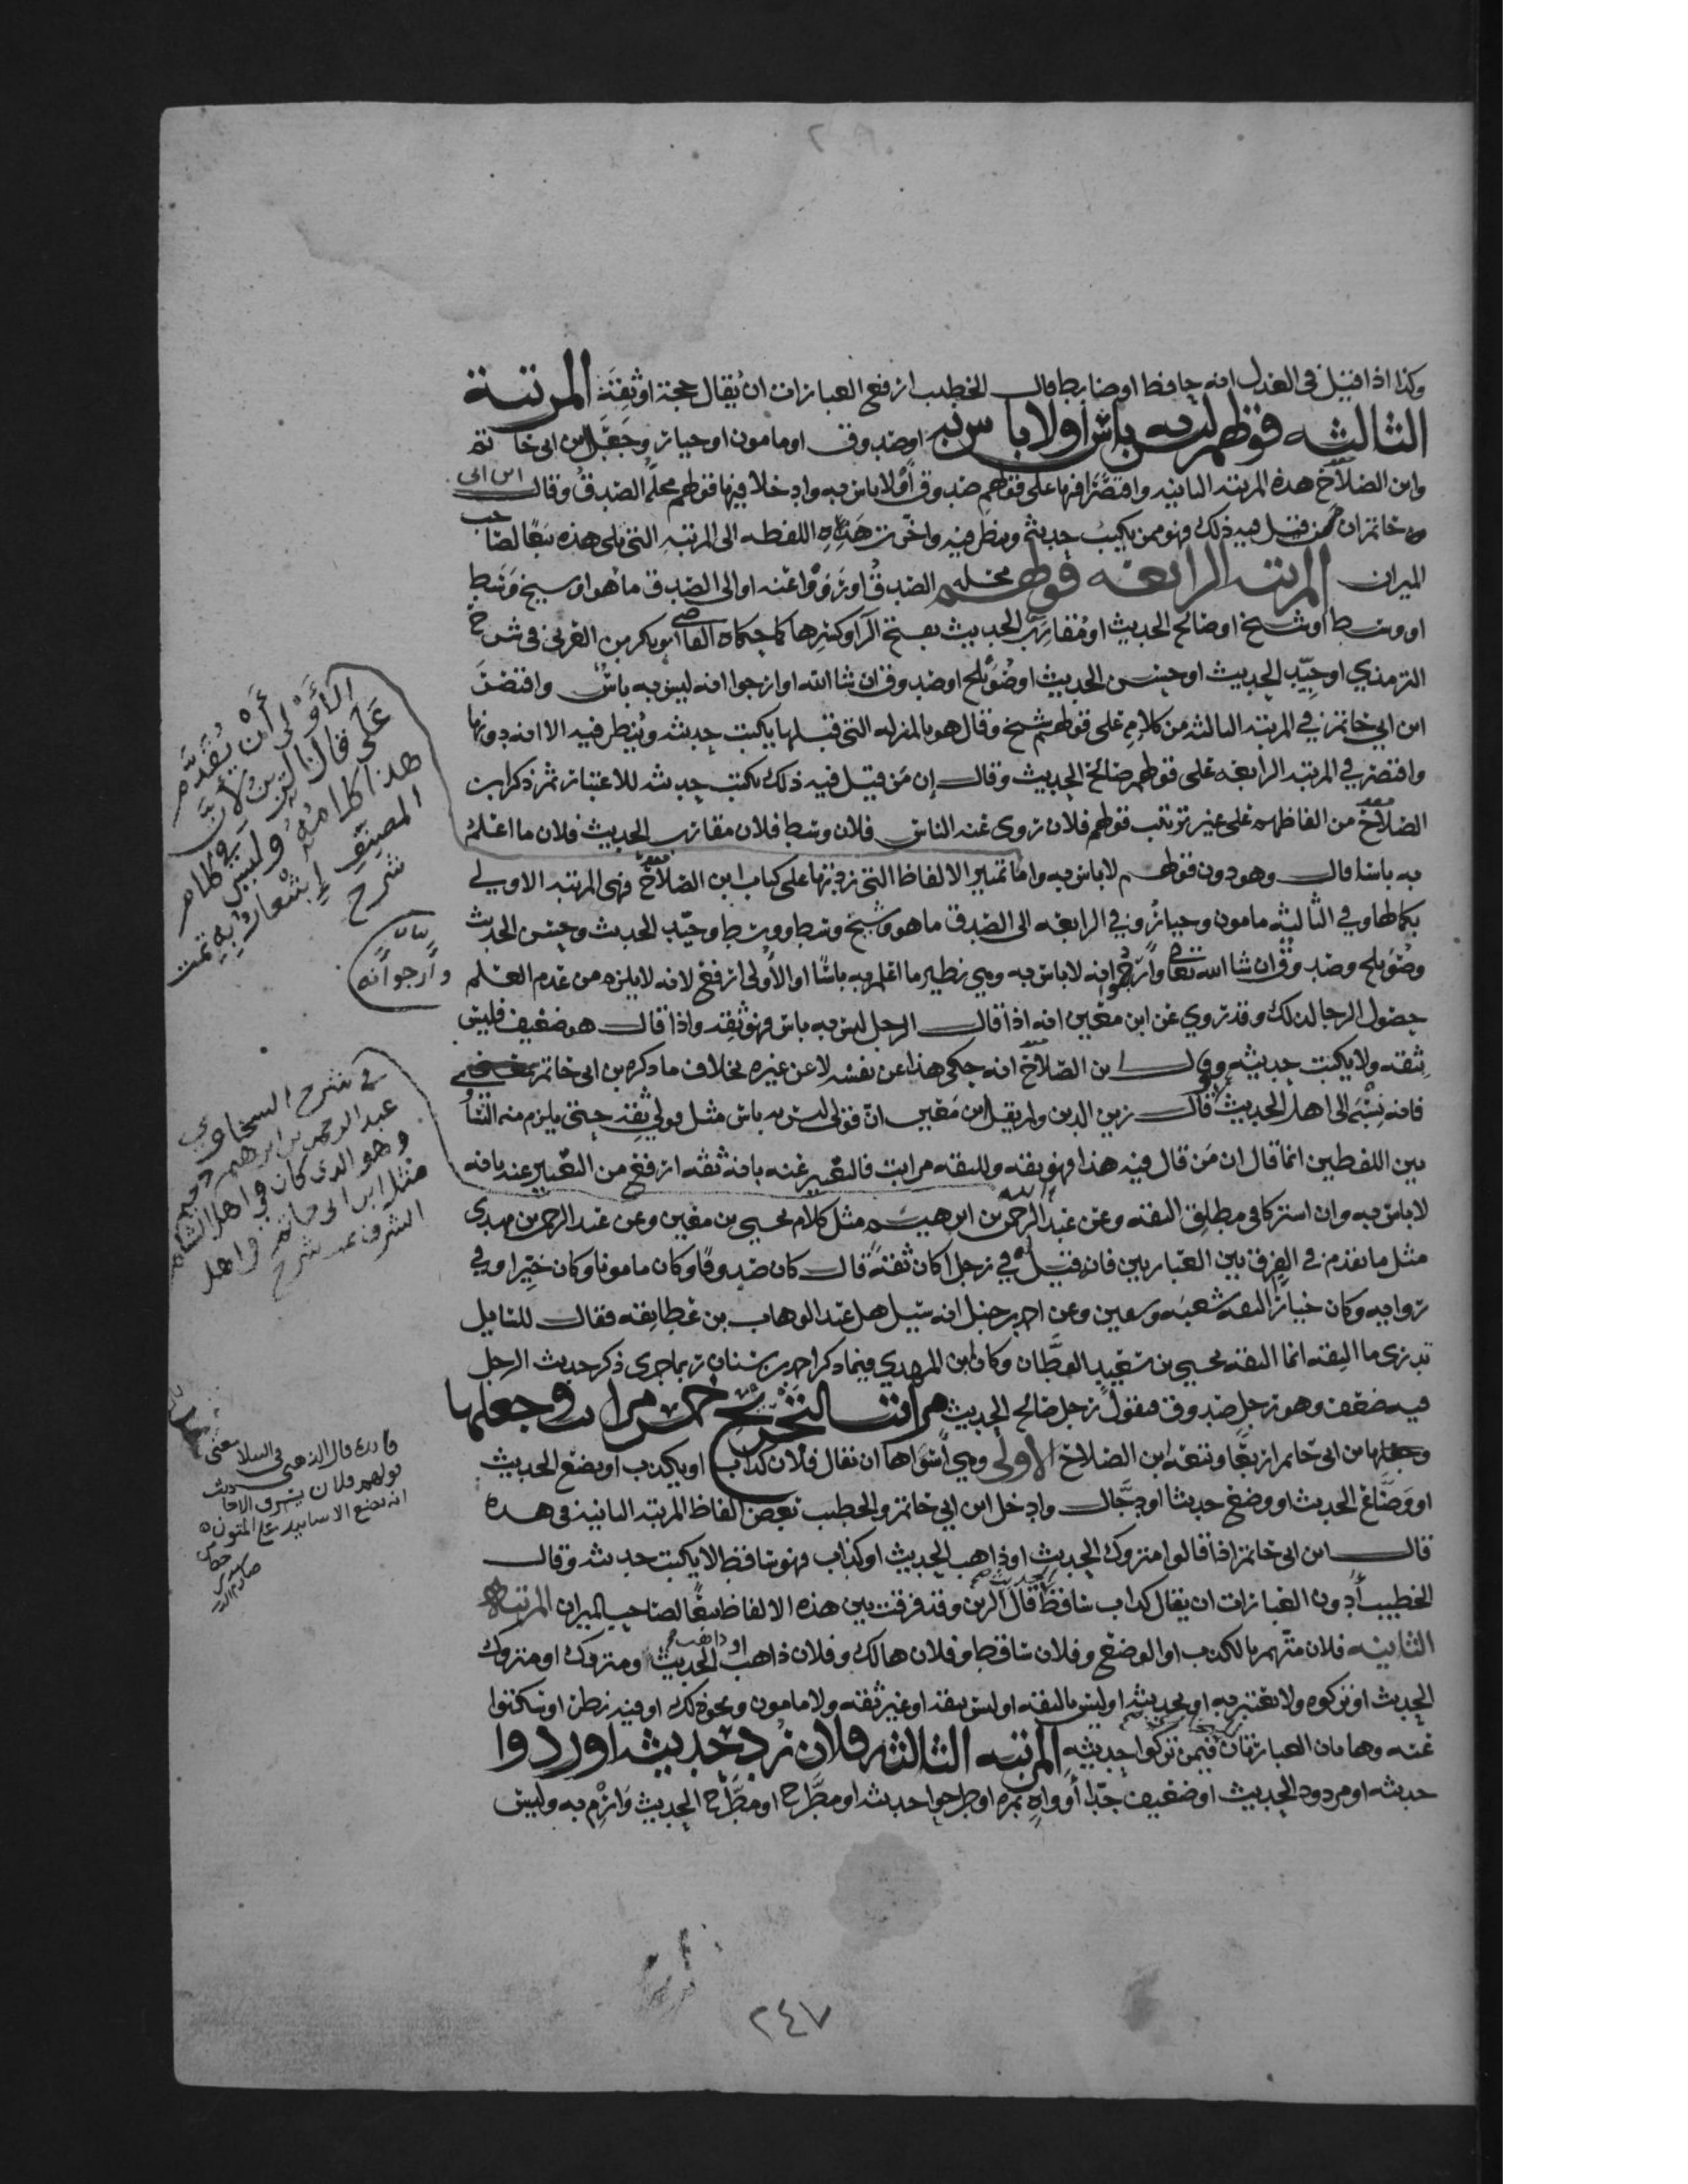 وكذا اذا قيل في العدل انه حافظ او ضابط قال الخطيب ارفع العبارات ان يقال حجة او ثقة المرتبة
الثالثه قولهم ليس به باس او لا باس به او صدوق او مامون او خيار وجعل ابن ابي حاتم
وابن الصلاح هذه المرتبه الثانيه واقتصرا فيها على قولهم صدوق او لا باس به وادخلا فيها قولهم محله الصدق وقال ابن ابي
حاتم ان من قيل فيه ذلك فهو ممن يكتب حديثه وينظر فيه واخرت هذه اللفظه الى المرتبه التي تلي هذه تبعا لصاحب
الميزان المرتبه الرابعه قولهم محله الصدق او رووا عنه او الى الصدق ما هو او شيخ وسط
او وسط او شيخ او صالح الحديث او مقارب الحديث بفتح الرا وكسرها كما حكاه القاضي ابو بكر بن العربي في شرح
الترمذي او جيد الحديث او حسن الحديث او صويلح او صدوق ان شا الله او ارجوا انه ليس به باس واقتصر
ابن ابي حاتم في المرتبه الثالثه من كلامه على قولهم شيخ وقال هو بالمنزله التي قبلها يكتب حديثه وينظر فيه الا انه دونها
واقتصر في المرتبه الرابعه على قولهم صالح الحديث وقال إن من قيل فيه ذلك يكتب حديثه للاعتبار ثم ذكر ابن
الصلاح من الفاظهم على غير ترتيب قولهم فلان روى عنه الناس فلان وسط فلان مقارب الحديث فلان ما اعلم
به باسا قال وهو دون قولهم لا باس به واما تمييز الالفاظ التي زدتها على كتاب ابن الصلاح فهي المرتبه الاولى
بكمالها وفي الثالثه مامون وخيار وفي الرابعه الى الصدق ما هو وشيخ وسط ووسط وجيد الحديث وحسن الحديث
وصويلح وصدوق ان شا الله تعالى وارجوا انه لا باس به وهي نظير ما اعلم به باسا او الأولى ارفع لانه لا يلزم من عدم العلم
حصول الرجا لذلك وقد روي عن ابن معين انه اذا قال الرجل ليس به باس فهو ثقه واذا قال هو ضعيف فليس
بثقه ولا يكتب حديثه وقال ابن الصلاح انه حكى هذا عن نفسه لا عن غيره بخلاف ما ذكره بن ابي حاتم
فانه نسبه الى اهل الحديث قال زين الدين ولم يقل ابن معين ان قولي ليس به باس مثل قولي ثقه حتى يلزم منه التساوي
بين اللفظين انما قال ان من قال فيه هذا فهو ثقه وللثقه مراتب فالتعبير عنه بانه ثقه ارفع من التعبير عنه بانه
لا باس به وان اشتركا في مطلق الثقه وعن عبد الرحمن بن ابرهيم مثل كلام يحيى بن معين وعن عبد الرحمن بن مهدي
مثل ما تقدم في الفرق بين العبارتين فانه قيل له في رجل اكان ثقة قال كان صدوقا وكان مامونا وكان خيرا وفي
روايه وكان خيارا الثقه شعبه وسفين وعن احمد بن حنبل انه سيل هل عبد الوهاب بن عطا ثقه فقال للسايل
تدري ما الثقه انما الثقه يحيى بن سعيد القطان وكان ابن المهدي فيما ذكر احمد بن سنان ربما جرى ذكر حديث الرجل
فيه ضعف وهو رجل صدوق فيقول رجل صالح الحديث مراتب التجريح خمس مراتب وجعلها
وجعلها بن ابي حاتم اربعا وتبعه ابن الصلاح الاولى وهي أسواها ان يقال فلان كذاب او يكذب او يضع الحديث
او وضاع الحديث او وضع حديثا او دجال وادخل ابن ابي حاتم والخطيب بعض الفاظ المرتبه الثانيه في هذه
قال ابن ابي حاتم اذا قالوا متروك الحديث او ذاهب الحديث او كذاب فهو ساقط لا يكتب حديثه وقال
الخطيب أدون العبارات ان يقال كذاب ساقط قال الزين وقد فرقت بين هذه الالفاظ تبعا لصاحب الميزان المرتبه
الثانيه فلان متهم بالكذب او الوضع وفلان ساقط وفلان هالك وفلان ذاهب او ذاهب الحديث ومتروك او متروك
الحديث او تركوه ولا يعتبر به او بحديثه او ليس بالثقه او ليس بثقه او غير ثقه ولا مامون ونحو ذلك او فيه نظر او سكتوا
عنه وهاتان العبارتان فيمن تركوا حديثه المرتبه الثالثه فلان رد حديثه او ردوا
حديثه او مردود الحديث او ضعيف جدا أو واه بمره او طرحوا حديثه او مطرح او مطرح الحديث وارم به وليس
الأولى أن يقدم
على قال الزين لأن
هذا كلامه وليس في كلام
المصنف إشعار به تمت
شرح
وارجوا انه
في شرح السخاوي
عبد الرحمن بن ابرهيم دحيم
وهو الذي كان في اهل الشام
مثل ابن ابي حاتم في اهل
المشرق تمت شرح
قال الذهبي في معنى
قولهم فلان يسرق الحديث
انه يضع الاسانيد على المتون
٢٤٧